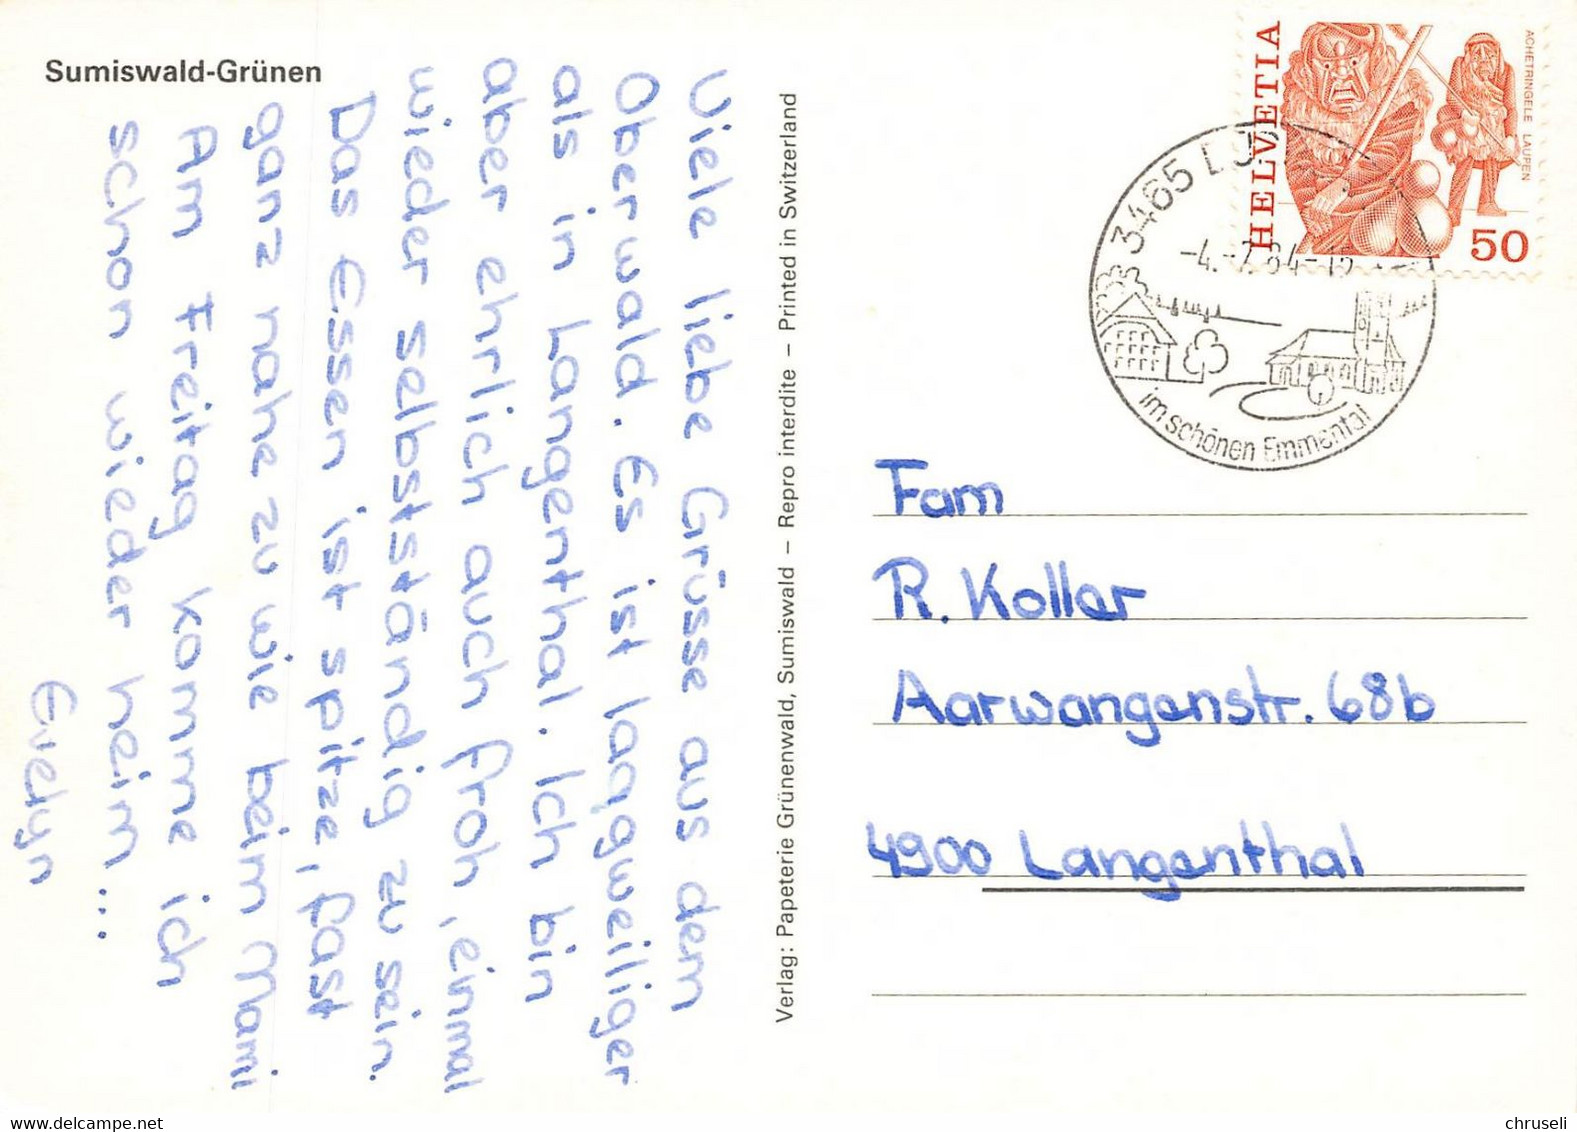 Sumiswald-Grünen
Viele liebe Grüsse aus dem
Oberwald. Es ist lagweiliger
als in Langenthal. Ich bin
aber ehrlich auch froh, einmal
wieder selbstständig zu sein.
Das Essen ist spitze, fast
ganz nahe zu wie beim Mami
Am Freitag komme ich
schon wieder heim...
Evelyn
Verlag: Papeterie Grünenwald, Sumiswald – Repro interdite – Printed in Switzerland
HELVETIA
ACHETRINGELE LAUPEN
50
3465
-4.-7.84-15
im schönen Emmental
Fam
R. Koller
Aarwangenstr. 68b
4900 Langenthal
chruseli